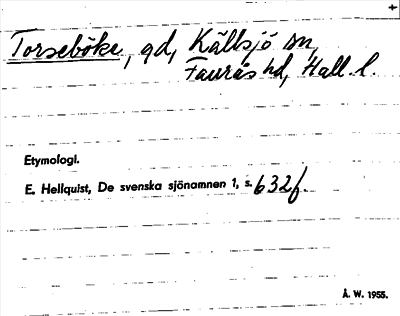 Torseböke, gd, Källsjö sn,
Faurås hd, Hall. l.
Etymologi.
E. Hellquist, De svenska sjönamnen 1, s. 632f.
Å. W. 1955.